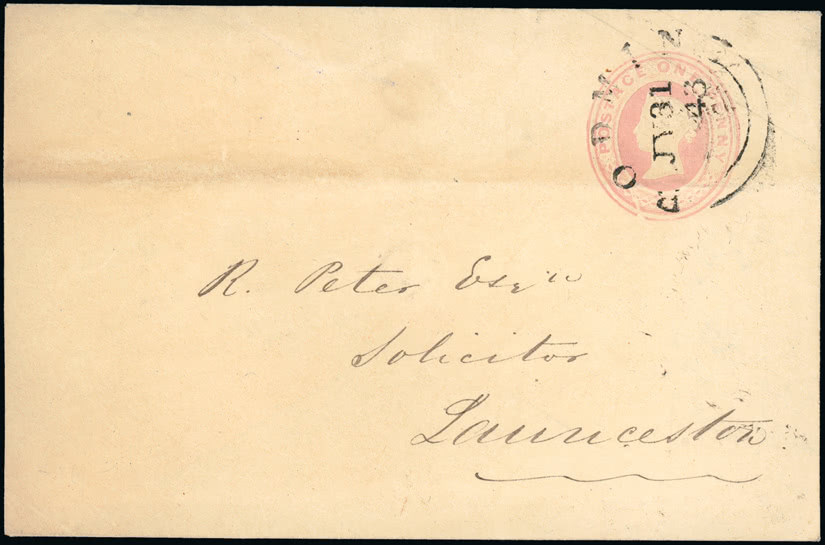 BODMIN
JY 31
POSTAGE ONE PENNY
R. Peter Esqre
Solicitor
Launceston